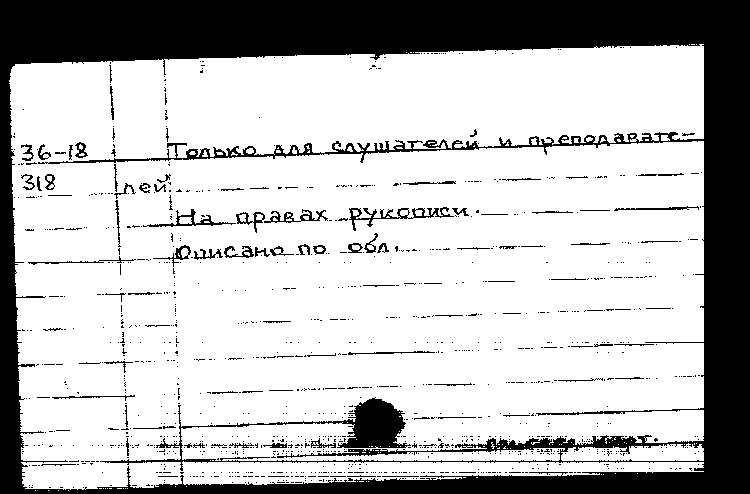 36-18 Только для слушателей и преподавате-
318 лей.
На правах рукописи.
Описано по обл.